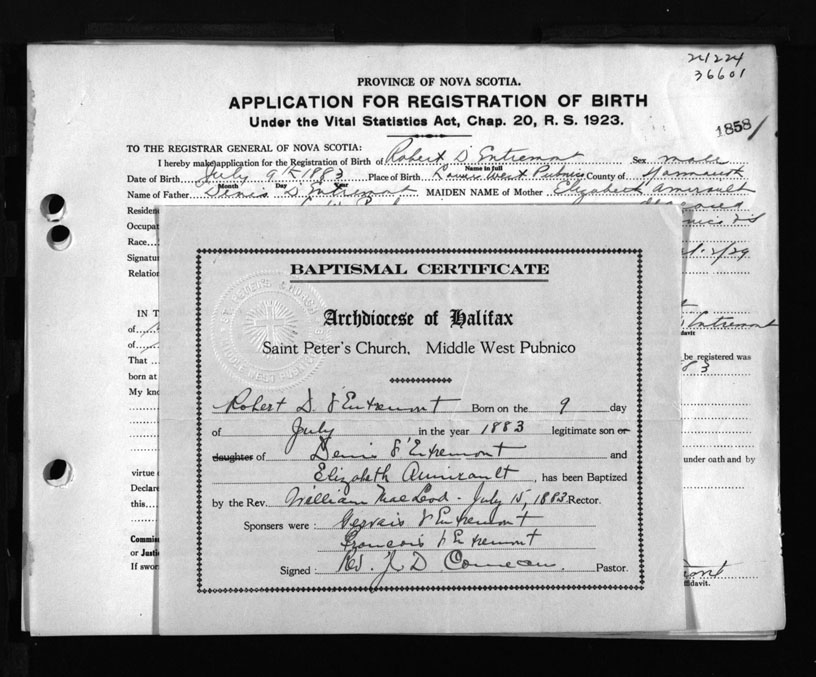 21224
36601
PROVINCE OF NOVA SCOTIA.
APPLICATION FOR REGISTRATION OF BIRTH
Under the Vital Statistics Act, Chap. 20, R. S. 1923.
1858
TO THE REGISTRAR GENERAL OF NOVA SCOTIA:
I hereby make application for the Registration of Birth of Robert D'Entremont Sex male
Name in full
Date of Birth July 9th 1883 Place of Birth Lower West Pubnico County of Yarmouth
Month Day Year
Name of Father Denis D'Entremont MAIDEN NAME of Mother Elizabeth Amirault
Residen
Occupat deceased
Race
Signatur
Relation
IN T
of
of
davit
That be registered was
born at
My kno
under oath and by
virtue
Declare
this
Commis
or Justic
If swor
ffidavit.
BAPTISMAL CERTIFICATE
Archdiocese of Halifax
Saint Peter's Church, Middle West Pubnico
Robert D. d'Entremont Born on the 9 day
of July in the year 1883 legitimate son or
daughter of Denis d'Entremont and
Elizabeth Amirault, has been Baptized
by the Rev. William MacLeod - July 15, 1883 Rector.
Sponsers were : Gervais d'Entremont
François d'Entremont
Signed : Rev. J. D. Comeau. Pastor.